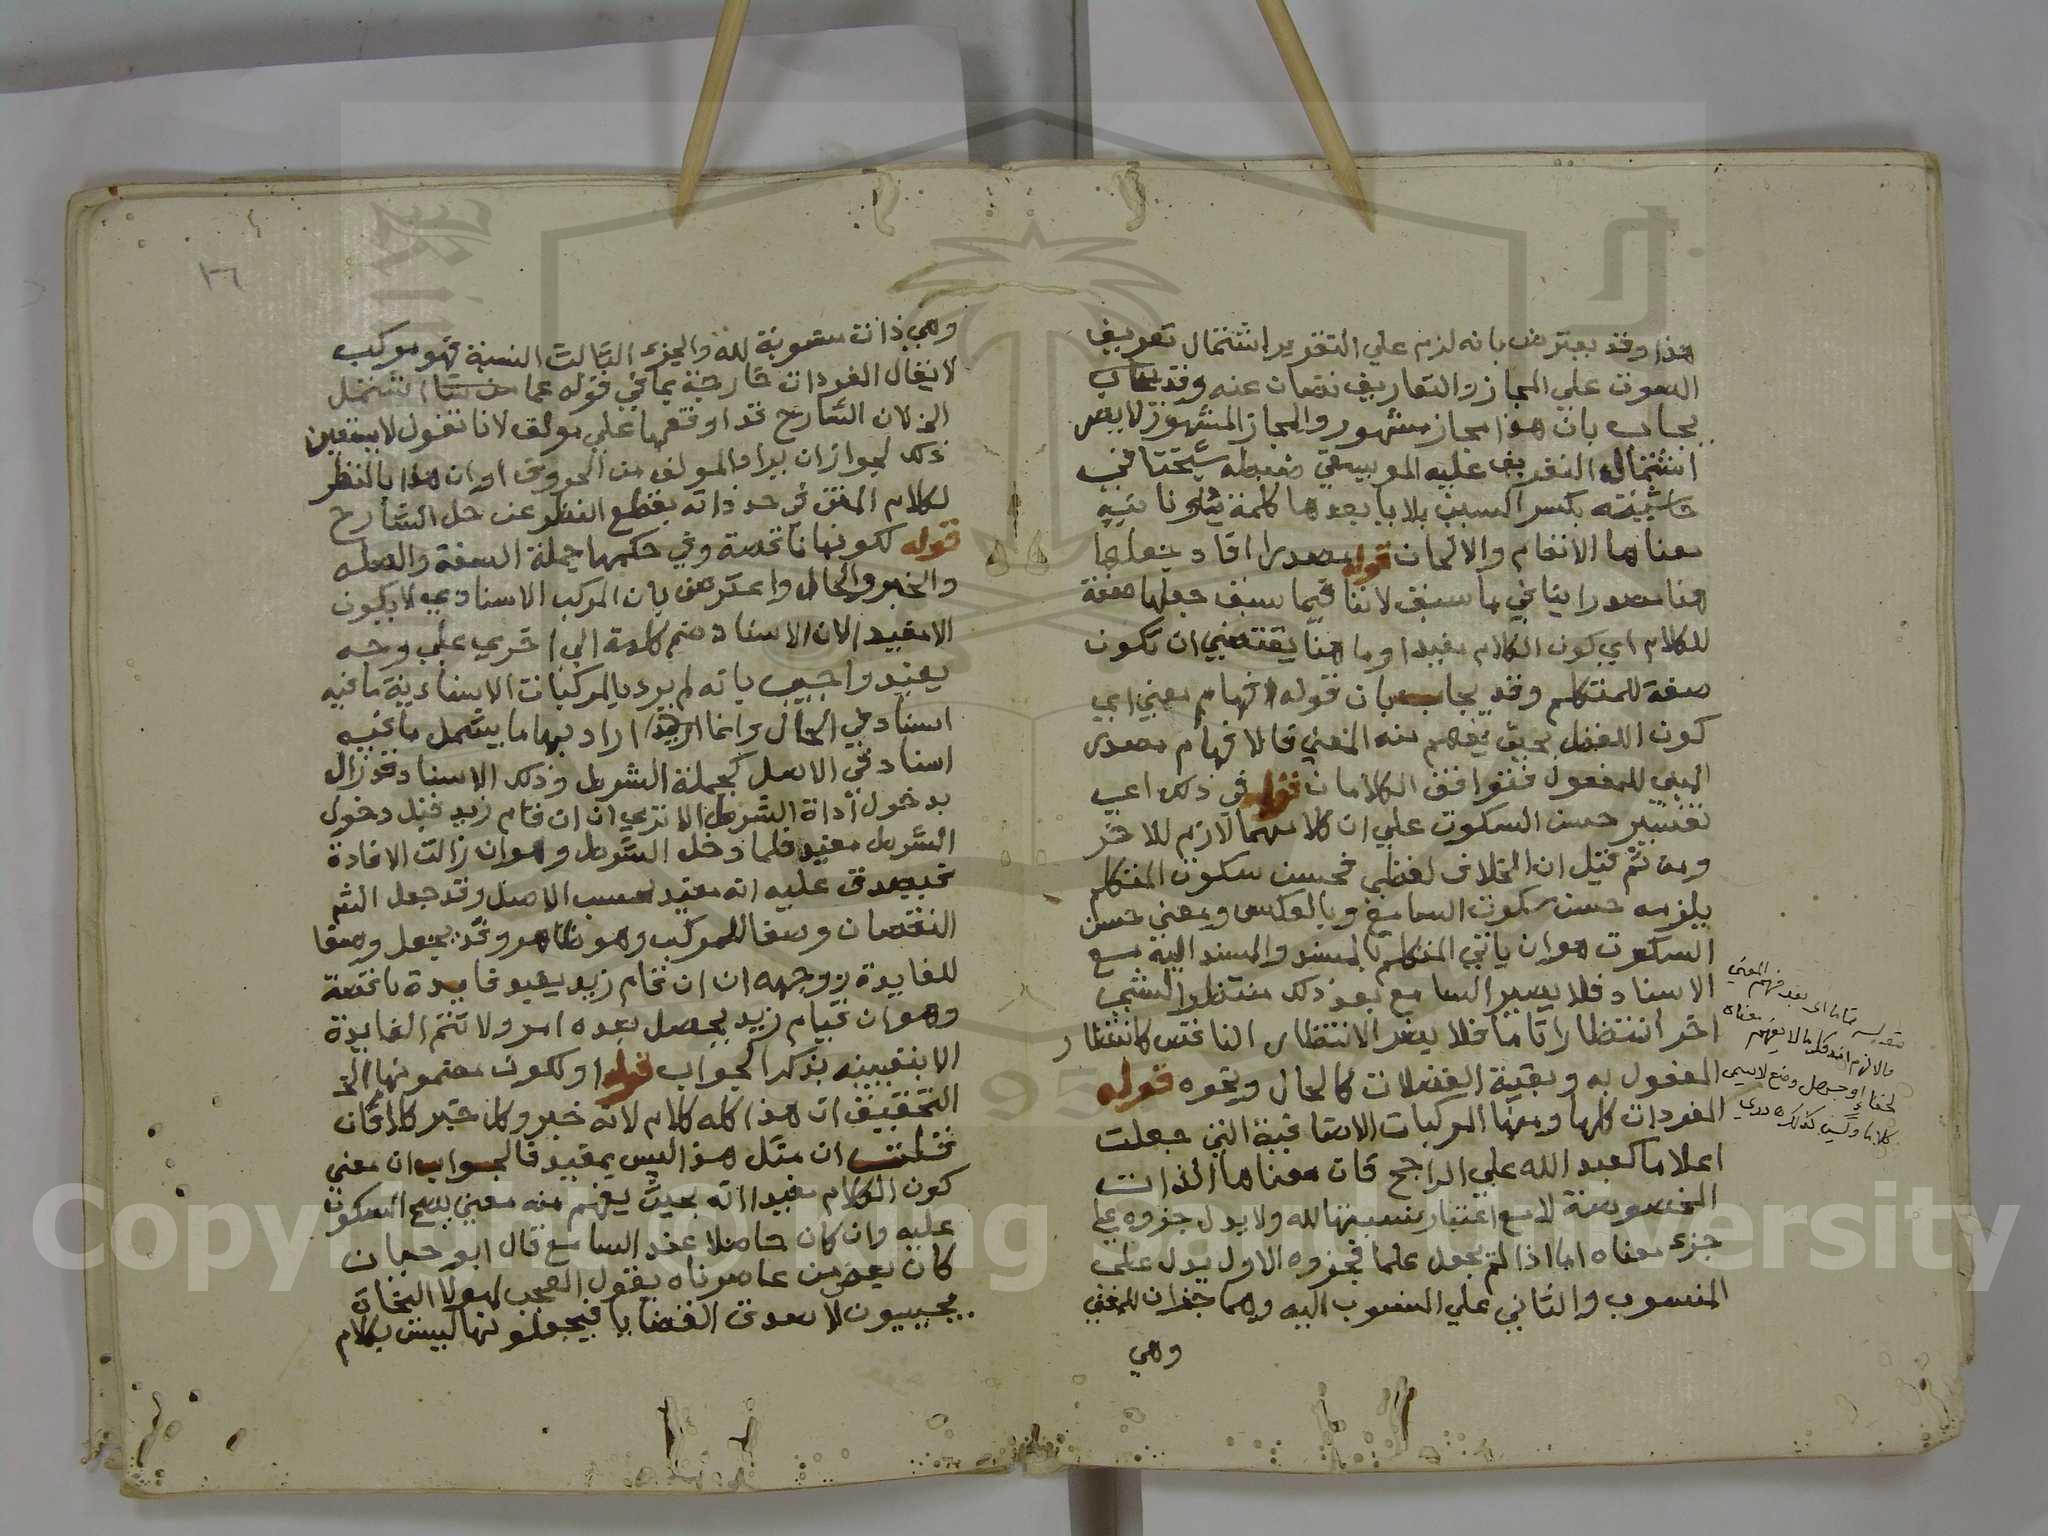 هذا وقد يعترض بانه لزم علي التقرير اشتمال تعريف
الصوت علي المجاز والتعاريف تصان عنه وقد يجاب
يجاب بان هذا مجاز مشهور والمجاز المشهور لا يضر
اشتمال التعريف عليه الموسيقي ضبطه شيخنا في
حاشيته بكسر السين بلا يا بعدها كلمة يونانيه
معناها الانغام والالحان قوله مصدرا افاد بجعلها
هنا مصدرا ينافي ما سبق لاننا فيما سبق جعلها صفة
للكلام اي كون الكلام مفيدا وما هنا يقتضي ان تكون
صفة للمتكلم وقد يجاب بان قوله افهام معني اي
كون اللفظ بحيث يفهم منه المعني فالافهام مصدر
المبني للمفعول فتوافق الكلامان قوله في ذلك اي
تفسير حسن السكوت علي ان كلا منهما لازم للاخر
ومن ثم قيل ان الخلاف لفظي فحسن سكوت المتكلم
يلزمه حسن سكوت السامع وبالعكس ومعني حسن
السكوت هو ان ياتي المتكلم بالمسند والمسند اليه مع
الاسناد فلا يصير السامع بعد ذلك منتظرا لشي
اخر انتظارا تاما فلا يضر الانتظار الناقص كانتظار
المفعول به وبقية الفضلات كالحال ونحوه قوله
المفردات كلها ومنها المركبات الاضافية التي جعلت
اعلاما كعبد الله علي الراجح فان معناها الذات
المخصوصة لا مع اعتبار نسبتها لله ولا يدل جزوه علي
جزء معناه اما اذا لم يجعل علما فجزوه الاول يدل علي
المنسوب والثاني علي المنسوب اليه وهما جزان للمعني
وهي
تاما اي بعد فهم المعني
وهي ذات منسوبة لله والجزء الثالث النسبة فهو مركب
لا يقال المفردات خارجة بما في قوله عما اشتمل
الخ لان الشارح قد اوقعها علي مولف لانا نقول لا يتعين
ذلك لجواز ان يراد المولف من الحروف او ان هذا بالنظر
لكلام المتن في حد ذاته بقطع النظر عن حل الشارح
قوله لكونها ناقصة وفي حكمها جملة الصفة والصلة
والخبر والحال واعترض بان المركب الاسنادي لا يكون
الا مفيدا لان الاسناد ضم كلمة الي اخري علي وجه
يفيد واجيب بانه لم يرد بالمركبات الاسنادية ما فيه
اسناد في الحال وانما اراد بها ما يشمل ما فيه
اسناد في الاصل كجملة الشرط وذلك الاسناد قد زال
بدخول اداة الشرط الا تري ان ان قام زيد قبل دخول
الشرط مفيد فلما دخل الشرط وهو ان زالت الافادة
فيصدق عليه انه مفيد بحسب الاصل وقد جعل الشم
النقصان وصفا للمركب وهو ظاهر وقد يجعل وصفا
للفايدة ووجهه ان ان قام زيد يفيد فايدة ناقصة
وهو ان قيام زيد يحصل بعده امر ولا تتم الفايدة
الا بتعيينه بذكر الجواب قوله او لكون مضمونها الخ
التحقيق ان هذا كله كلام لانه خبر وكل خبر كلام فان
قلت ان مثل هذا ليس بمفيد فالجواب ان معني
كون الكلام مفيدا انه بحيث يفهم منه معني يصح السكوت
عليه وان كان حاصلا عند السامع قال ابو حيان
كان بعض من عاصرناه يقول العجب لهولا النحاة
يجيبون لاصدق القضايا فيجعلونها ليس بكلام
Copyright © King Saud University